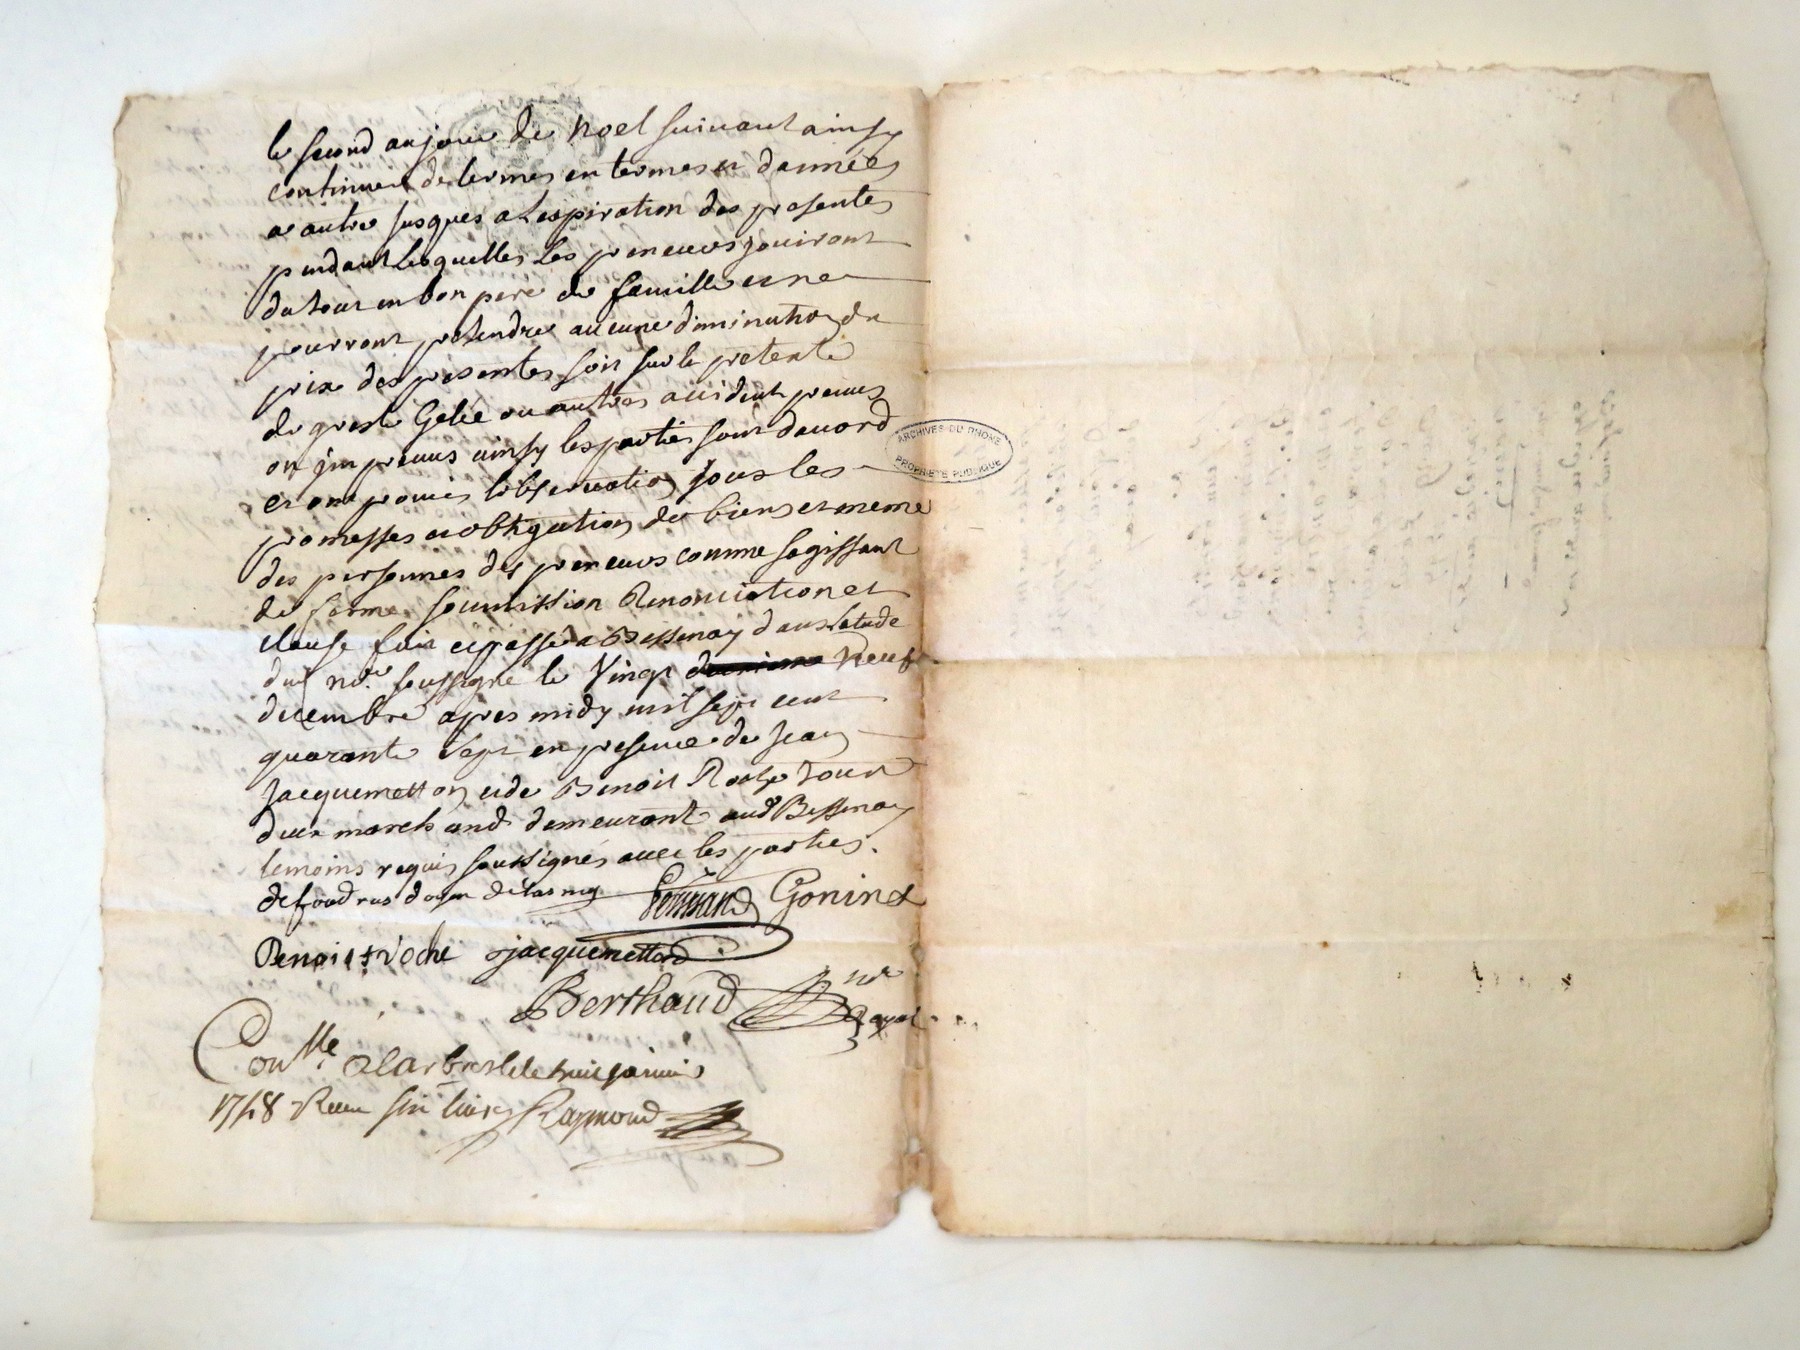 le second au jour de noel suivant ainsy
continuer de termes en termes et dannées
a autre jusques a lexpiration des presentes
pendant lesquelles les preneurs jouiront
du tout en bon pere de famille et ne
pourront pretendre aucune diminution du
prix des presentes soit sur le pretexte
de gresle Gelée ou autres accident prevus
ou jmprevus ainsy les parties sont dacord
et ont promis lobservation sous les
promesses et obligations de biens et meme
des personnes des preneurs comme sagissant
de ferme soumission Renonciation et
clause fait et passé a Bessenay dans letude
du nore. soussigné le Vingt neuf
decembre apres midy mil sept cent
quarante sept en presence de Jean
Jacquemetton et de Benoit Roche tous
deux marchands demeurant aud Bessenay
temoins requis soussignés avec les parties.
defoudras doyen Gonin
Benoist Roche jacquemetton
Berthaud nre
Royal
Conlle. a Larbresle le huit janvier
1748 Receu six livres Raymond
ARCHIVES DU RHONE
PROPRIETE PUBLIQUE